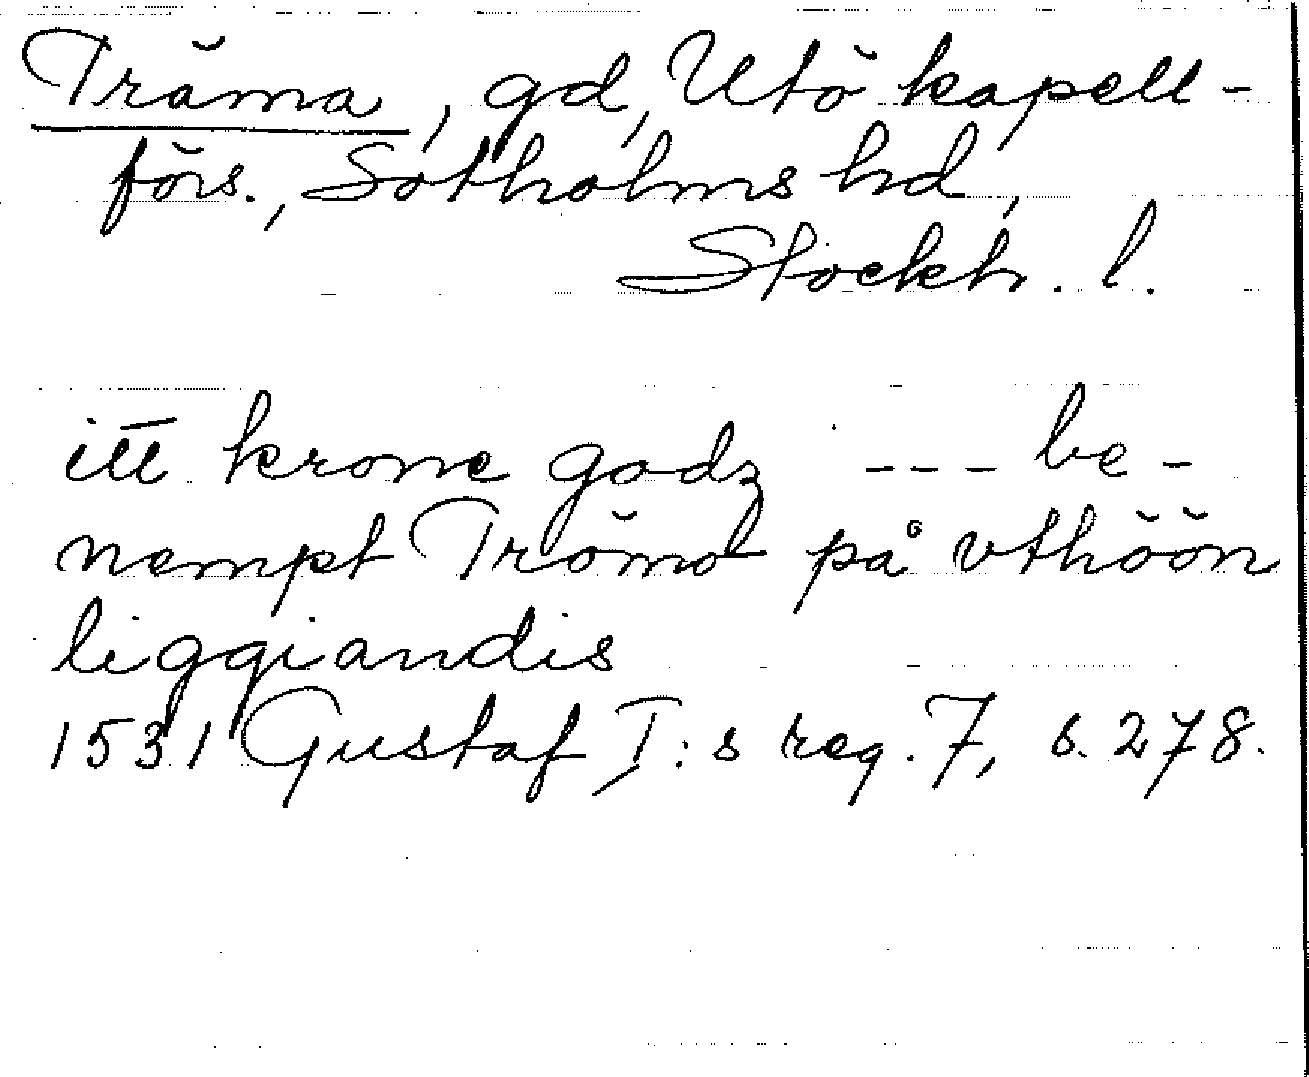 Träma, gd, Utö kapell-
förs., Sotholms hd,
Stockh. l.
itt krone godz --- be-
nempt Trömo på vthöön
liggiandis
1531 Gustaf I:s reg. 7, s. 278.